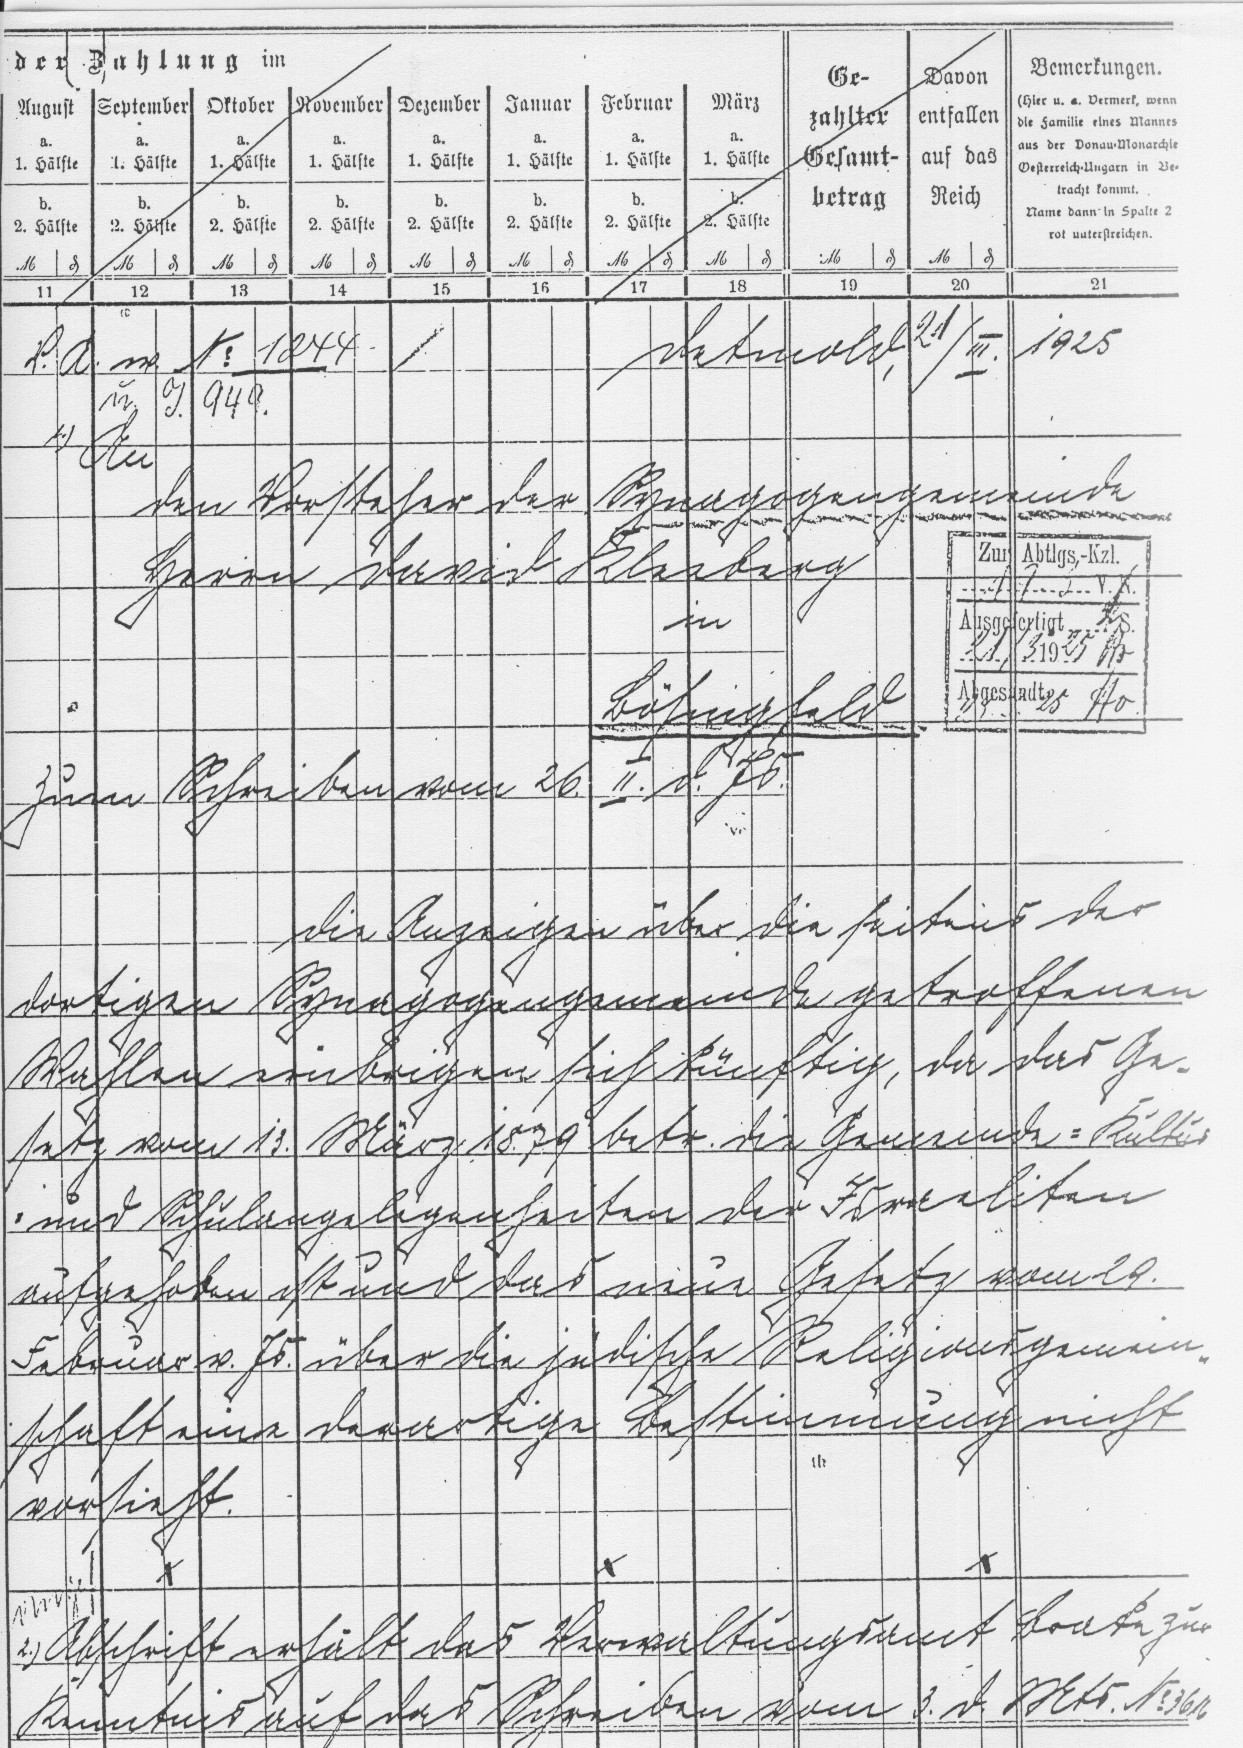 der Zahlung im
August September Oktober November Dezember Januar Februar März
a. a. a. a. a. a. a. a.
1. Hälfte 1. Hälfte 1. Hälfte 1. Hälfte 1. Hälfte 1. Hälfte 1. Hälfte 1. Hälfte
b. b. b. b. b. b. b. b.
2. Hälfte 2. Hälfte 2. Hälfte 2. Hälfte 2. Hälfte 2. Hälfte 2. Hälfte 2. Hälfte
Ge-
zahlter
Gesamt-
betrag
Davon
entfallen
auf das
Reich
Bemerkungen.
(Hier u. a. Vermerk, wenn
die Familie eines Mannes
aus der Donau-Monarchie
Oesterreich-Ungarn in Be-
tracht kommt.
Name dann in Spalte 2
rot unterstreichen.
M ₰ M ₰ M ₰ M ₰ M ₰ M ₰ M ₰ M ₰ M ₰ M ₰
11 12 13 14 15 16 17 18 19 20 21
V. A. w. No 1244 Detmold, 21/III. 1925
u. J. 949.
1.) An
den Vorsteher der Synagogengemeinde
Herrn David Kleeberg
in
Bösingfeld
Zur Abtlgs.-Kzl.
Ausgefertigt
21/3 1925
Abgesandt
zum Schreiben vom 26. II. d. Js.
Die Anzeigen über die seitens der
dortigen Synagogengemeinde getroffenen
Wahlen erübrigen sich künftig, da das Ge-
setz vom 13. März 1879 betr. die Gemeinde=Kultus
= und Schulangelegenheiten der Israeliten
aufgehoben ist und das neue Gesetz vom 29.
Februar v. Js. über die jüdische Religionsgemein-
schaft eine derartige Bestimmung nicht
vorsieht.
2.) Abschrift erhält das Verwaltungsamt Brake zur
Kenntnis auf das Schreiben vom 3. d. Mts. No